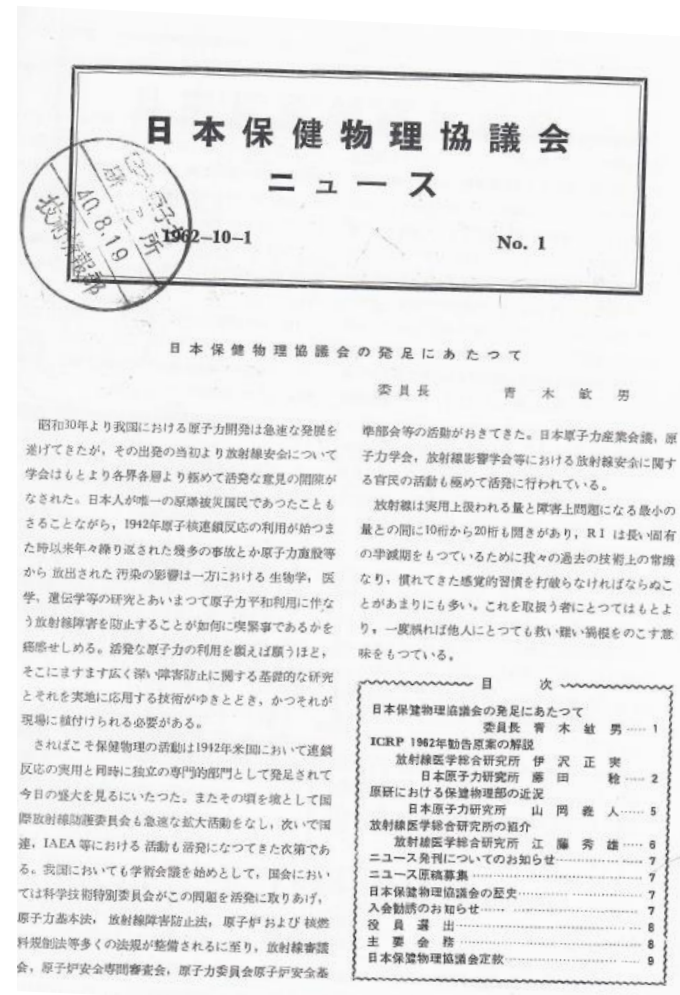 日本保健物理協議会
ニュース
1962-10-1
No. 1
40.8.19
技術情報部
日本保健物理協議会の発足にあたつて
委員長 青木敏男
昭和30年より我国における原子力開発は急速な発展を
遂げてきたが，その出発の当初より放射線安全について
学会はもとより各界各層より極めて活発な意見の開陳が
なされた。日本人が唯一の原爆被災国民であつたことも
さることながら，1942年原子核連鎖反応の利用が始つま
た時以来年々繰り返された幾多の事故とか原子力施設等
から放出された汚染の影響は一方における生物学，医
学，遺伝学等の研究とあいまつて原子力平和利用に伴な
う放射線障害を防止することが如何に喫緊事であるかを
痛感せしめる。活発な原子力の利用を願えば願うほど，
そこにますます広く深い障害防止に関する基礎的な研究
とそれを実地に応用する技術がゆきとどき，かつそれが
現場に植付けられる必要がある。
さればこそ保健物理の活動は1942年米国において連鎖
反応の実用と同時に独立の専門的部門として発足されて
今日の盛大を見るにいたつた。またその頃を境として国
際放射線防護委員会も急速な拡大活動をなし，次いで国
連，IAEA等における活動も活発になつてきた次第であ
る。我国においても学術会議を始めとして，国会におい
ては科学技術特別委員会がこの問題を活発に取りあげ，
原子力基本法，放射線障害防止法，原子炉および核燃
料規制法等多くの法規が整備されるに至り，放射線審議
会，原子炉安全専門審査会，原子力委員会原子炉安全基
準部会等の活動がおきてきた。日本原子力産業会議，原
子力学会，放射線影響学会等における放射線安全に関す
る官民の活動も極めて活発に行われている。
放射線は実用上扱われる量と障害上問題になる最小の
量との間に10桁から20桁も開きがあり，ＲＩは長い固有
の半減期をもつているために我々の過去の技術上の常識
なり，慣れてきた感覚的習慣を打破らなければならぬこ
とがあまりにも多い。これを取扱う者にとつてはもとよ
り，一度誤れば他人にとつても救い難い禍根をのこす意
味をもつている。
目次
日本保健物理協議会の発足にあたつて
委員長 青木敏男……1
ICRP 1962年勧告原案の解説
放射線医学総合研究所 伊沢正実
日本原子力研究所 藤田稔……2
原研における保健物理部の近況
日本原子力研究所 山岡義人……5
放射線医学総合研究所の紹介
放射線医学総合研究所 江藤秀雄……6
ニュース発刊についてのお知らせ……7
ニュース原稿募集……7
日本保健物理協議会の歴史……7
入会勧誘のお知らせ……7
役員選出……8
主要会務……8
日本保健物理協議会定款……9